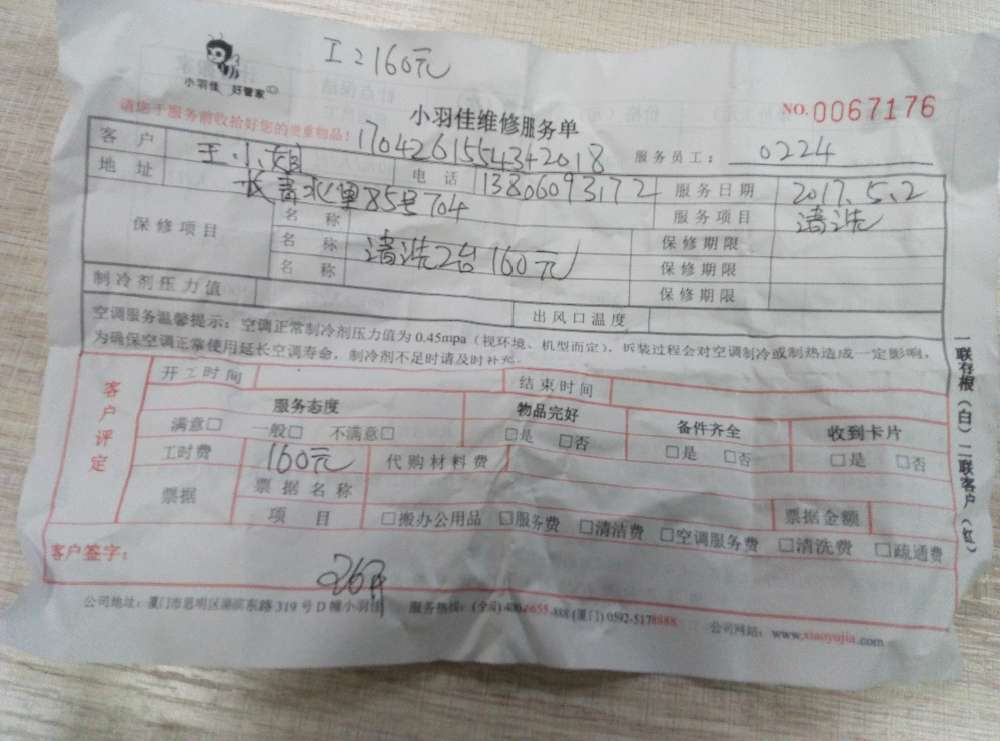 工:160元
小羽佳 好管家
小羽佳维修服务单
NO.0067176
请您于服务前收拾好您的贵重物品!
1704261554342018
服务员工: 0224
客户 王小姐 电话 13806093172 服务日期 2017.5.2
地址 85号704 服务项目 清洗
保修项目
名称 保修期限
名称 清洗2台160元 保修期限
名称 保修期限
制冷剂压力值 出风口温度
空调服务温馨提示:空调正常制冷剂压力值为0.45mpa(视环境、机型而定),拆装过程会对空调制冷或制热造成一定影响,
为确保空调正常使用延长空调寿命,制冷剂不足时请及时补充.
客户评定
开工时间 结束时间
服务态度 物品完好 备件齐全 收到卡片
满意□ 一般□ 不满意□ □是 □否 □是 □否 □是 □否
工时费 160元 代购材料费
票据 票据名称 票据金额
项目 □搬办公用品 □服务费 □清洁费 □空调服务费 □清洗费 □疏通费
客户签字:
公司地址:厦门市思明区湖滨东路319号D幢小羽佳 服务热线:(全国)400-6655-888(厦门)0592-5178888 公司网站:www.xiaoyujia.com
一联存根(白)二联客户(红)